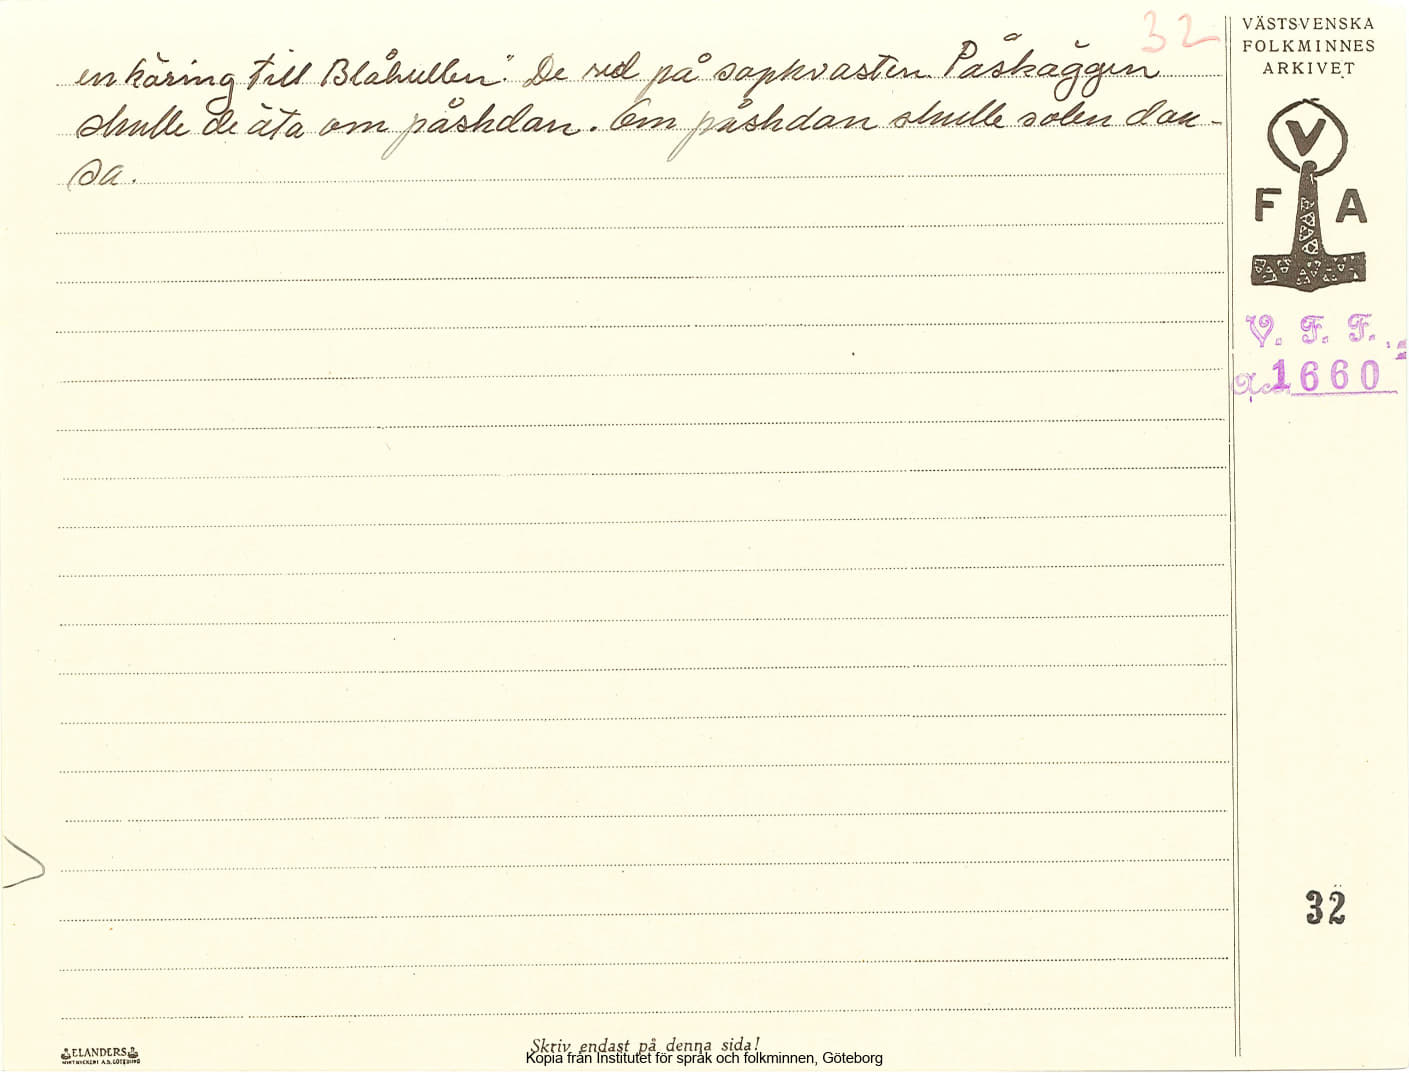 32
VÄSTSVENSKA
FOLKMINNES
ARKIVET
en käring till Blåkullen". De red på sopkvasten. Påskäggen
skulle de äta om påskdan. Om påskdan skulle solen dan-
sa.
V
F A
V. F. F.
1660
32
ELANDERS
Skriv endast på denna sida!
Kopia från Institutet för språk och folkminnen, Göteborg